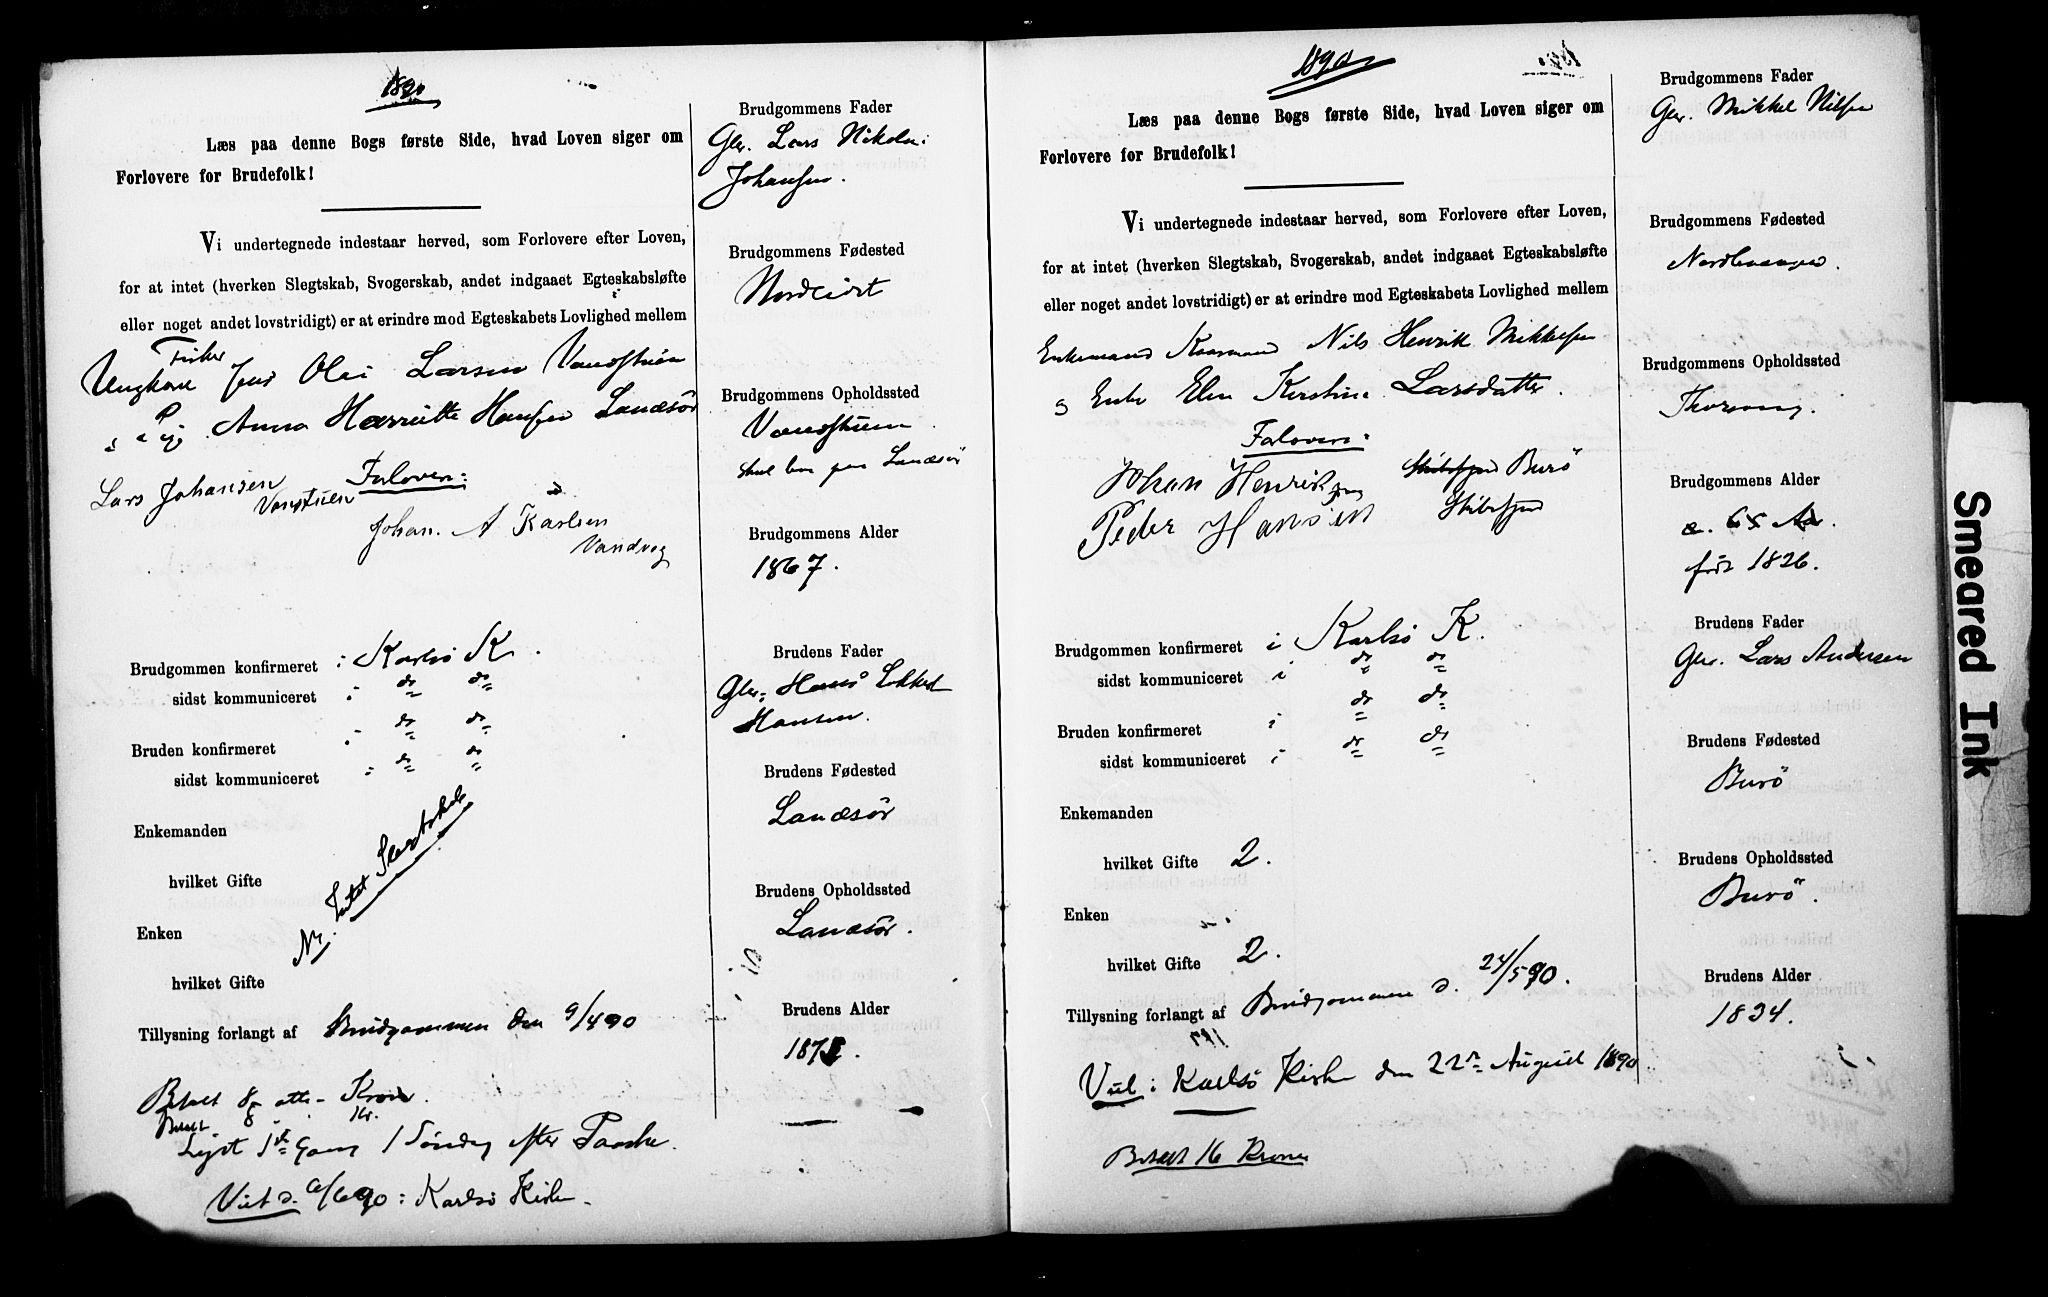 1890
Læs paa denne Bogs første Side, hvad Loven siger om
Forlovere for Brudefolk!
Vi undertegnede indestaar herved, som Forlovere efter Loven,
for at intet (hverken Slegtskab, Svogerskab, andet indgaaet Egteskabsløfte
eller noget andet lovstridigt) er at erindre mod Egteskabets Lovlighed mellem
Fisker
Ungkarl Jens Olai Larsen Vandstuen
Pige Anna Harriette Hansen Landsør
Forlovere:
Lars Johansen
Vanstuen
Johan. A Karlsen
Vandvag
Brudgommen konfirmeret i Karlsø K.
sidst kommuniceret i do do
Bruden konfirmeret i do do
sidst kommuniceret i do do
Enkemanden
hvilket Gifte
Enken
hvilket Gifte
N. Intet Slegtskab
Tillysning forlangt af Brudgommen den 9/4 90
Betalt 8 otte Kroner
Lyst 1ste Gang 1 Søndag efter Paaske.
Viet d. 6/6 90 i Karlsø Kirke
Brudgommens Fader
Gbr. Lars Nikolai
Johansen.
Brudgommens Fødested
Brudgommens Opholdssted
Vandstuen
skal bo paa Landsør
Brudgommens Alder
1867.
Brudens Fader
Gbr. Hans
Hansen.
Brudens Fødested
Landsør
Brudens Opholdssted
Landsør.
Brudens Alder
1890
Læs paa denne Bogs første Side, hvad Loven siger om
Forlovere for Brudefolk!
Vi undertegnede indestaar herved, som Forlovere efter Loven,
for at intet (hverken Slegtskab, Svogerskab, andet indgaaet Egteskabsløfte
eller noget andet lovstridigt) er at erindre mod Egteskabets Lovlighed mellem
Enkemand Kaarmand Nils Henrik Mikkelsen
og Enke Elen Kirstine Larsdatter.
Forlovere:
Johan Henriksen Skibsfjord Burø
Peder Hansen Skibsfjord
Brudgommen konfirmeret i Karlsø K.
sidst kommuniceret i do do
Bruden konfirmeret i do do
sidst kommuniceret i do do
Enkemanden
hvilket Gifte 2.
Enken
hvilket Gifte 2.
Tillysning forlangt af Brudgommen d. 24/5 90.
Viet i Karlsø Kirke den 22de August 1890
Betalt 16 Kroner
Brudgommens Fader
Gbr. Mikkel Nilsen
Brudgommens Fødested
Brudgommens Opholdssted
Thorsvaag.
Brudgommens Alder
c. 65 Aar.
født 1826.
Brudens Fader
Gbr. Lars Andersen
Brudens Fødested
Burø
Brudens Opholdssted
Burø.
Brudens Alder
1834.
Smeared Ink